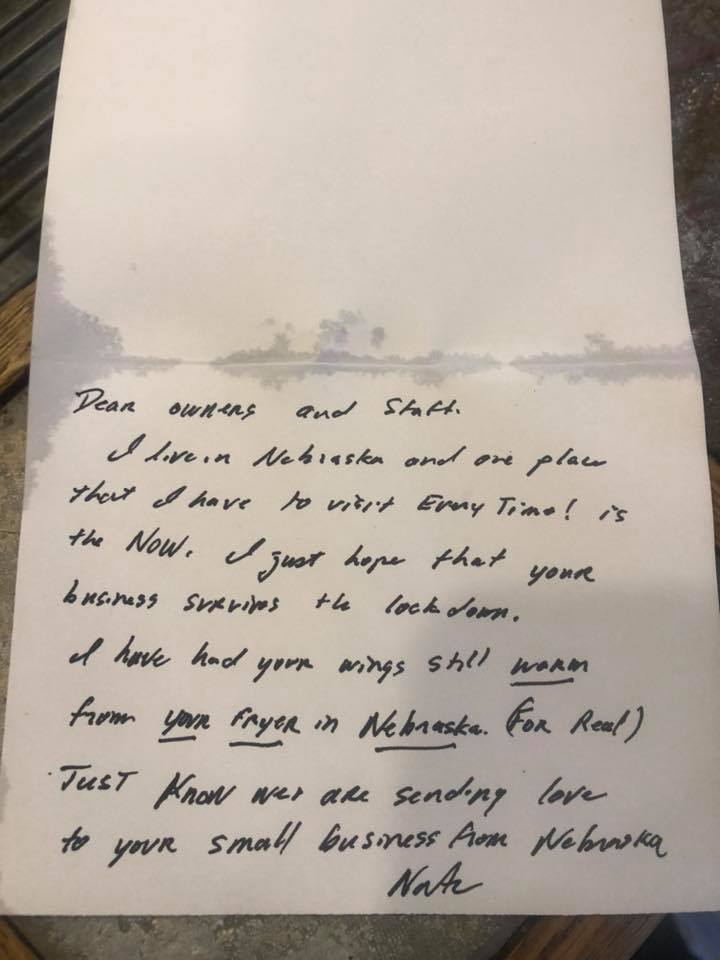 Dear owners and Staff.
I live in Nebraska and one place
that I have to visit Every Time! is
the NOW. I just hope that your
business survives the lockdown.
I have had your wings still warm
from your Fryer in Nebraska. (For Real)
Just Know we are sending love
to your small business from Nebraska
Nate